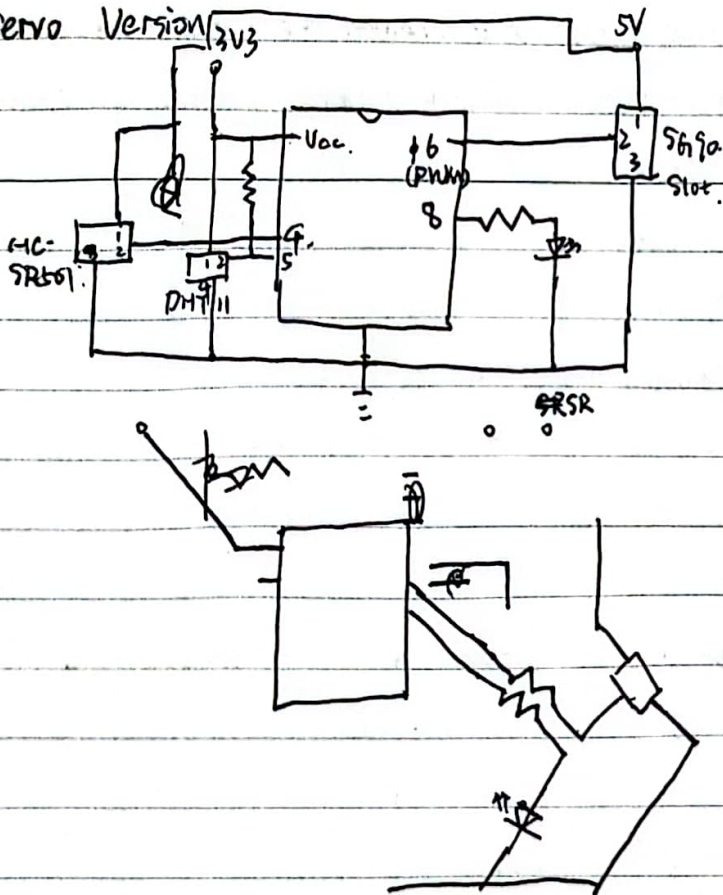 Servo Version
3V3
5V
Vcc.
φ6
(PWM)
1
2
3
SG90
Slot.
8
HC-
SR501.
1
2
3
4.
5
1 2
4
DHT 11
SR